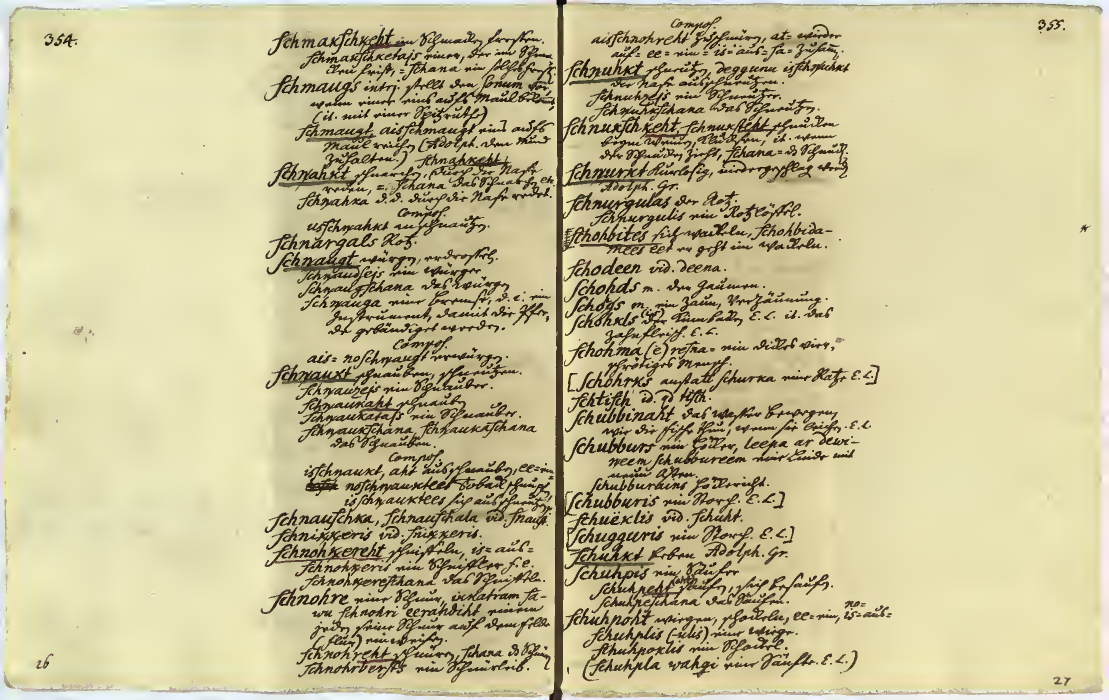 354.
schmakschkeht im Schmacken fressen.
schmakschketajs einer, der im Schma-
cken frist, = schana ein solches
schmaugs interj. stellt den sonum vor,
wenn einer eins aufs Maul bekomt
(it. mit einer Spitzruthe)
schmaugt, aisschmaugt eins aufs
Maul reichen (Adolph. den Mund
zuhalten) schnahkeht
schnahkt schnarchen, durch die Nase
reden, =schana das Schnarchen etc.
schnahka d.d. durch die Nase redet.
Compos.
usschnahkt anschnautzen.
schnargals Rotz.
schnaugt würgen, erdrosseln.
schnaudsejs ein würger
schnaugschana das würgen
schnauga eine Bremse, d. i. ein
Instrument, damit die Pfer-
de gebändiget werden.
Compos.
ais= noschnaugt erwürgen.
schnaukt schnauben, schneutzen.
schnauzejs ein Schnauber.
schnaukaht schnauben
schnaukatajs ein Schnauber.
schnaukschana, schnaukaschana
das Schnauben.
Compos.
isschnaukt, aht ausschnauben, ee=ein=
noschnauktees Tobak schnupf
isschnauktees sich ausschneutzen
schnauschka, schnauschala vid. snausch
schnikkeris vid. snikkeris.
schnohkereht schnüffeln, is=aus=
schnohkeris ein Schnüffler f. e.
schnohkereschana das Schnüffeln.
schnohre eine Schnur, ikkatram sa-
wu schnohri eerahdiht einem
jeden seine Schnur auf dem felde
(flur) einweisen.
schnohreht schnüren, schana ds Schnür
schnohrbersts ein Schnürleib.
26
355.
Compos.
aisschnohreht zuschnüren, at= wieder
auf= ee=ein= is=aus= sa=zusam.
schnuhkt schneutzen, deggunu isschnuhkt
die Nase ausschneutzen.
schnuhzejs ein Schneutzer.
schnuhkschana das Schneutzen.
schnukschkeht, schnuksteht schnucken
beym Weinen, Schluchsen, it. wenn
der Schnucken zieht, schana=ds Schnuck.
schnurkt kurlosig, niedergeschlag werd
Adolph. Gr.
schnurgulas der Rotz.
schnurgulis ein Rotzlöffel.
schohbites sich wackeln, schohbida-
mees eet er geht im wackeln.
schodeen vid. deena.
schohds m. der Gaumen.
schogs m. ein Zaun, Verzäunung.
schohkls der Kinnbacken E.L. it. das
Zahnfleisch. E. L.
schohma (e) resna= ein dickes vier-
schrötiges Mensch.
[schohrks anstatt schurka eine Ratze E.L.]
schtisch id. qd tisch.
schubbinaht das wasser bewegen
wie die fische thun, wenn sie leichen. E.L
schubburs ein Höcker, leepa ar dewi-
neem schubbureem eine Linde mit
neun Ästen.
schubburains höckericht.
[schubburis ein Storch. E.L.]
schuëklis vid. schuht.
[schugguris ein Storch. E.L.]
schuhkt kehen Adolph. Gr.
schuhpis ein Säufer
schuhpeht saufen, sich besaufen.
schuhpeschana das Saufen.
schuhpoht wiegen, schockeln, ee=ein, no= is=aus=
schuhplis (-ulis) eine wiege.
schuhpoklis ein Schockel.
(schuhpla wahgi eine Sänfte. E.L.)
27